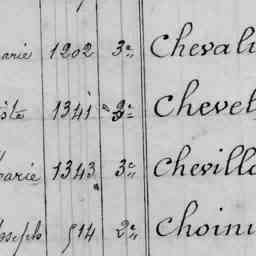 arie 1202 3e Chevali
iste 1341 2e Chevet
Marie 1343 3e Chevilla
Joseph 514 2e Choini